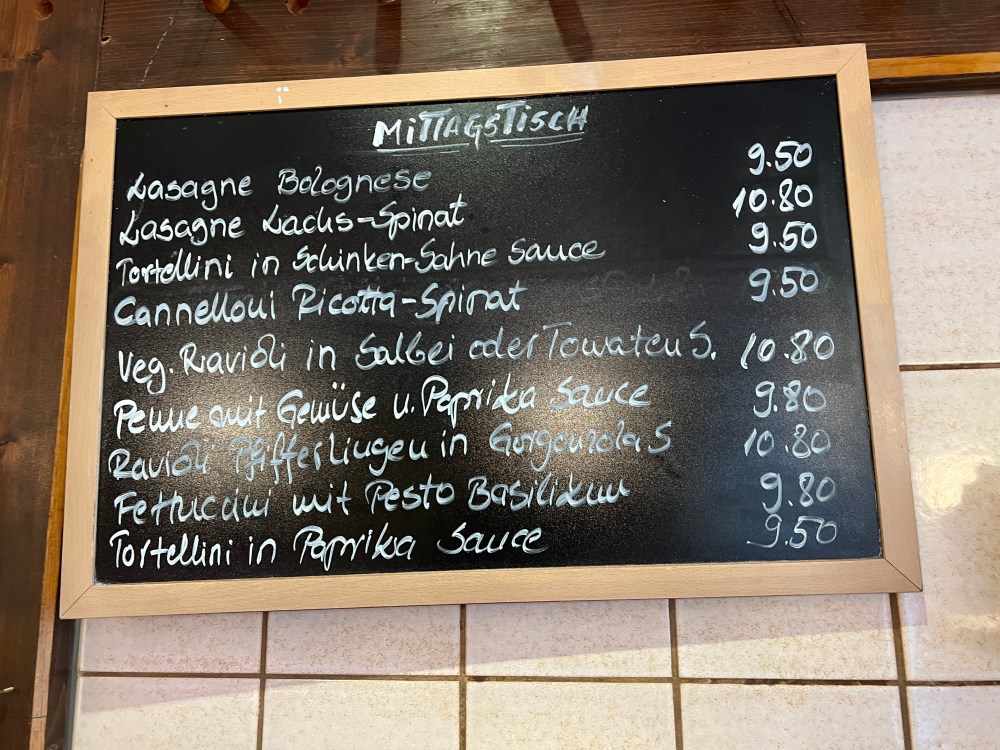 MITTAGSTISCH
Lasagne Bolognese 9.50
Lasagne Lachs-Spinat 10.80
Tortellini in Schinken-Sahne Sauce 9.50
Cannelloni Ricotta-Spinat 9.50
Veg. Ravioli in Salbei oder Tomaten S. 10.80
Penne mit Gemüse u. Paprika Sauce 9.80
Ravioli Pfifferlingen in Gorgonzola S 10.80
Fettuccini mit Pesto Basilikum 9.80
Tortellini in Paprika Sauce 9.50